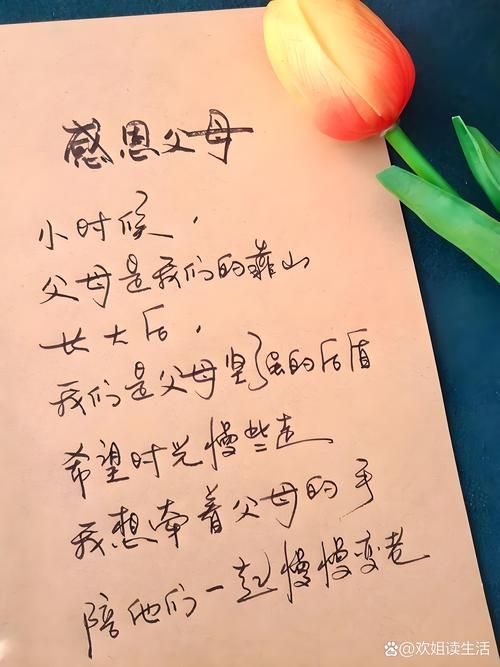 感恩父母
小时候，
父母是我们的靠山
长大后，
我们是父母坚强的后盾
希望时光慢些走
我想牵着父母的手
陪他们一起慢慢变老
@欢姐读生活